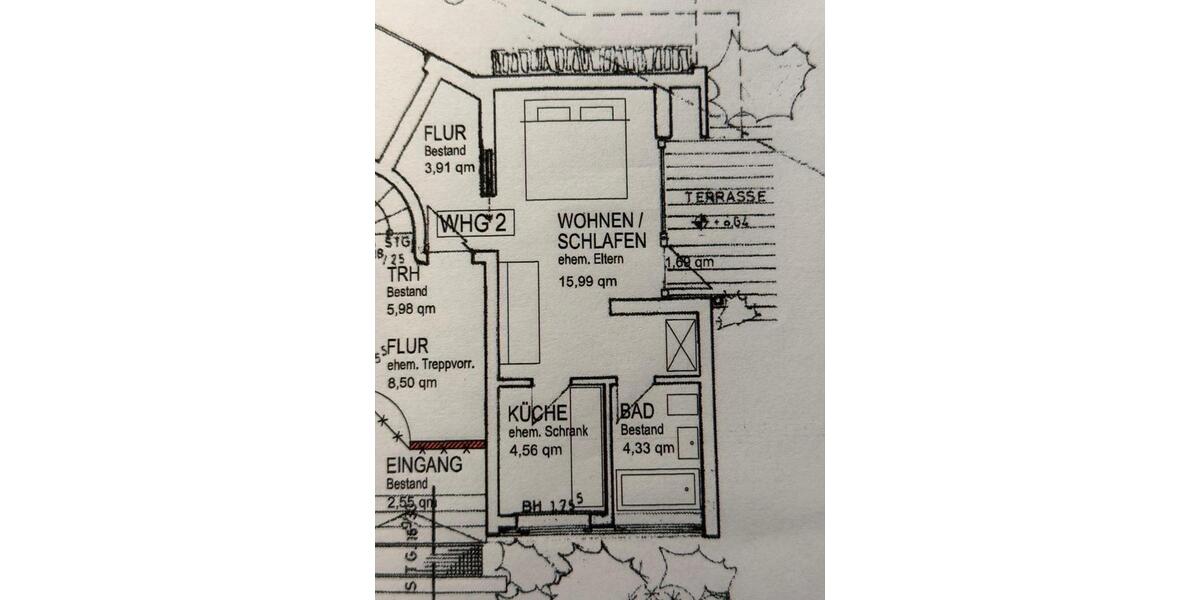 FLUR
Bestand
3,91 qm
WHG 2
WOHNEN /
SCHLAFEN
ehem. Eltern
15,99 qm
TERRASSE
1,69 qm
STG
18/25
TRH
Bestand
5,98 qm
FLUR
ehem. Treppvorr.
8,50 qm
KÜCHE
ehem. Schrank
4,56 qm
BAD
Bestand
4,33 qm
EINGANG
Bestand
2,55 qm
BH 1.75⁵
STG.